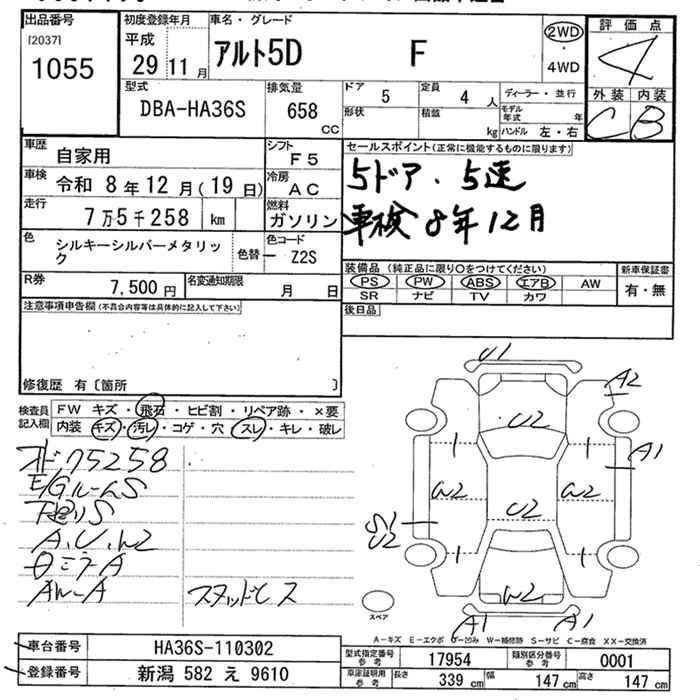 出品番号
[2037]
1055
初度登録年月
平成
29年11月
車名・グレード
アルト5D F
2WD
・
4WD
評価点
4
外装 内装
C B
型式
DBA-HA36S
排気量
658
CC
ドア
5
定員
4 人
形状
積載
kg
ディーラー・並行
モデル年式 年
ハンドル 左・右
車歴
自家用
シフト
F5
車検
令和 8年12月(19日)
冷房
AC
走行
7万5千258 km
燃料
ガソリン
色
シルキーシルバーメタリック
色替
色コード
Z2S
R券
7,500円
名変通知期限
月 日
セールスポイント(正常に機能するものに限ります)
5ドア・5速
車検8年12月
装備品(純正品に限り○をつけてください)
PS PW ABS エアB AW
SR ナビ TV カワ
新車保証書
有・無
後日品
注意事項申告欄(不具合内容等は具体的に記入して下さい)
修復歴 有〔箇所 〕
検査員記入欄
FW キズ・飛石・ヒビ割・リペア跡・×要
内装 キズ・汚レ・コゲ・穴・スレ・キレ・破レ
75258
E/GルームS
下廻りS
A,U,W2
A
AW-A
スタッドレス
U1
A2
U2
A1
W2
U2
W2
S1
U2
W2
A1
A1
スペア
A-キズ E-エクボ U-凹み W-補修跡 S-サビ C-腐食 XX-交換済
車台番号
HA36S-110302
登録番号
新潟 582 え 9610
型式指定番号
参考
17954
類別区分番号
参考
0001
車庫証明用
参考
長さ 339 cm
幅 147 cm
高さ 147 cm